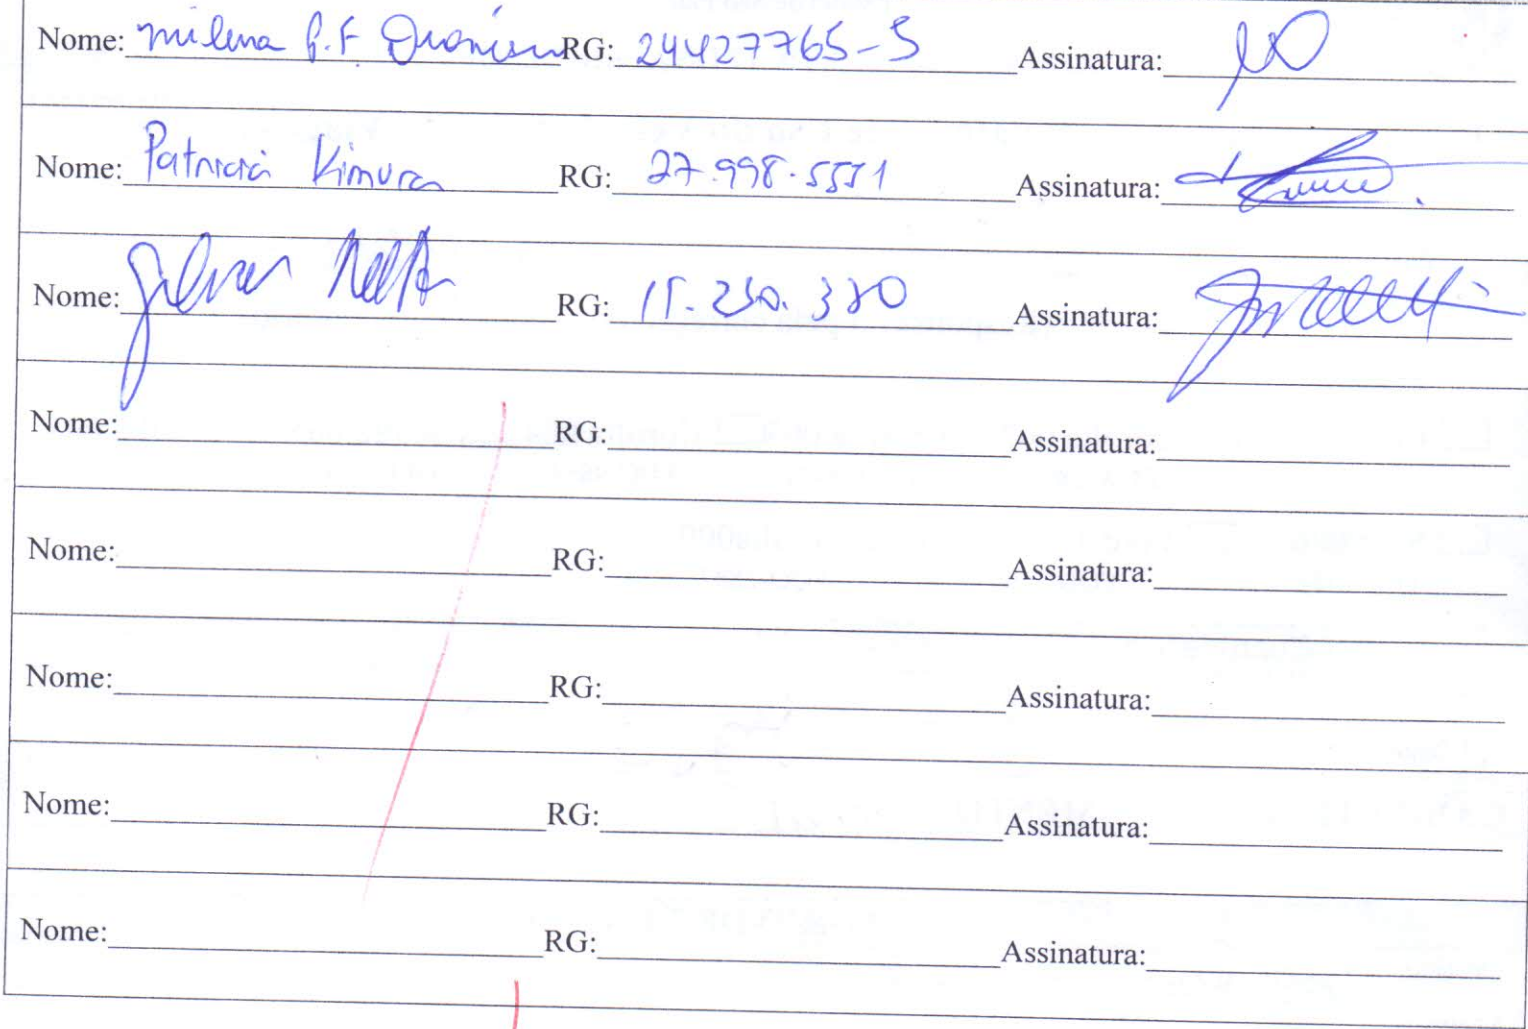 Nome: Milena G.F Dionísio RG: 24427765-5 Assinatura:
Nome: Patricia Kimura RG: 27.998.5551 Assinatura:
Nome: RG: 15.250.380 Assinatura:
Nome: RG: Assinatura:
Nome: RG: Assinatura:
Nome: RG: Assinatura:
Nome: RG: Assinatura:
Nome: RG: Assinatura: